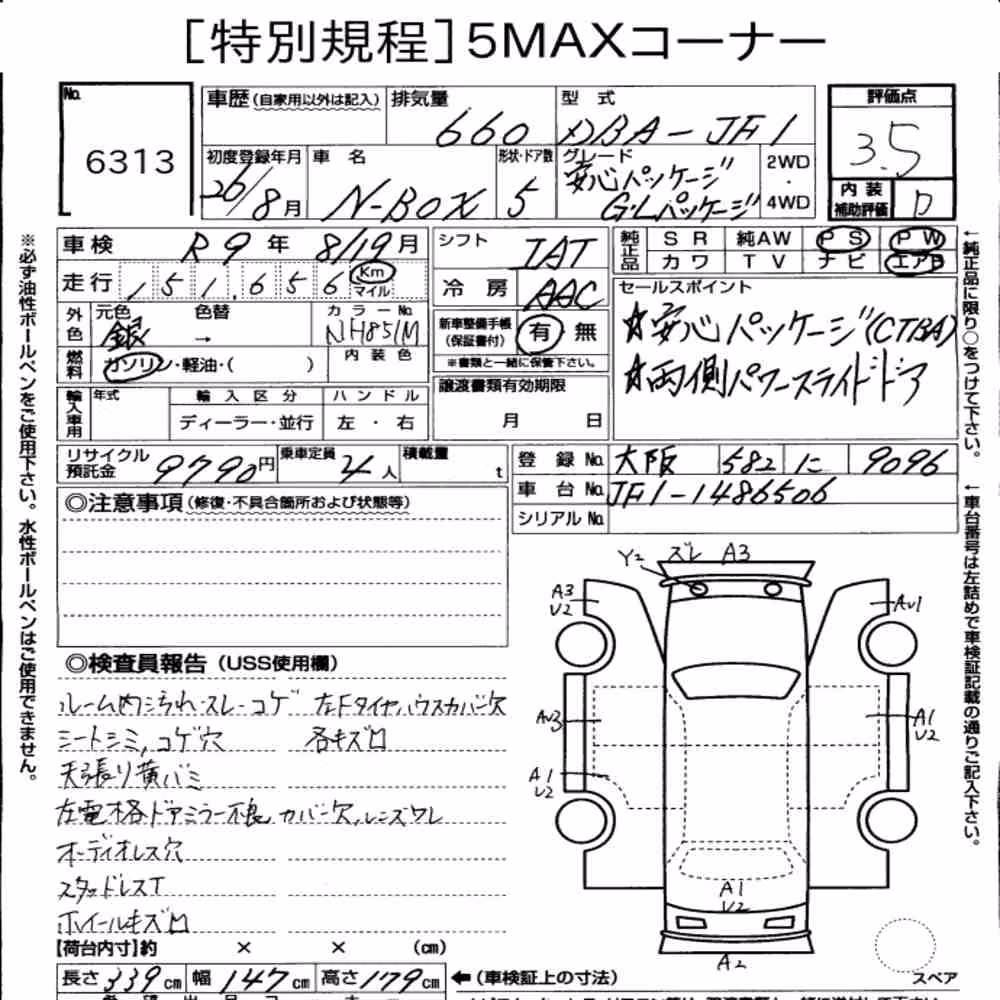 ［特別規程］5MAXコーナー
No. 6313
車歴（自家用以外は記入） 排気量 660 型式 DBA-JF1
初度登録年月 26/8月 車名 N-BOX 形状・ドア数 5 グレード 安心パッケージ G・Lパッケージ 2WD・4WD
評価点 3.5
内装補助評価 D
車検 R9年 8/19月
走行 151,656 Km マイル
外色 元色 銀 色替 → カラーNo. NH851M
燃料 ガソリン・軽油・( ) 内装色
輸入車用 年式 輸入区分 ディーラー・並行 ハンドル 左・右
シフト IAT
冷房 AAC
新車整備手帳（保証書付） 有 無
※書類と一緒に保管下さい。
譲渡書類有効期限 月 日
純正品 SR 純AW PS PW
カワ TV ナビ エアB
セールスポイント
☆安心パッケージ(CTBA)
☆両側パワースライドドア
←純正品に限り○をつけて下さい。
リサイクル預託金 9790円 乗車定員 4人 積載量 t
登録No. 大阪 582 に 9096
車台No. JF1-1486506
シリアルNo.
←車台番号は左詰めで車検証記載の通りご記入下さい。
※必ず油性ボールペンをご使用下さい。水性ボールペンはご使用できません。
◎注意事項（修復・不具合箇所および状態等）
◎検査員報告（USS使用欄）
ルーム内汚れ・スレ・コゲ 左Fタイヤハウスカバー欠
シートシミ,コゲ穴 各キズロ
天張り黄バミ
左電格ドアミラー不良,カバー欠,レンズワレ
オーディオレス穴
スタッドレスT
ホイールキズロ
Y2 ズレ A3
A3
U2
AU1
AU3
A1
U2
A1
U2
A1
U2
A2
スペア
【荷台内寸】約 × × (cm)
長さ 339cm 幅 147cm 高さ 179cm ←（車検証上の寸法）